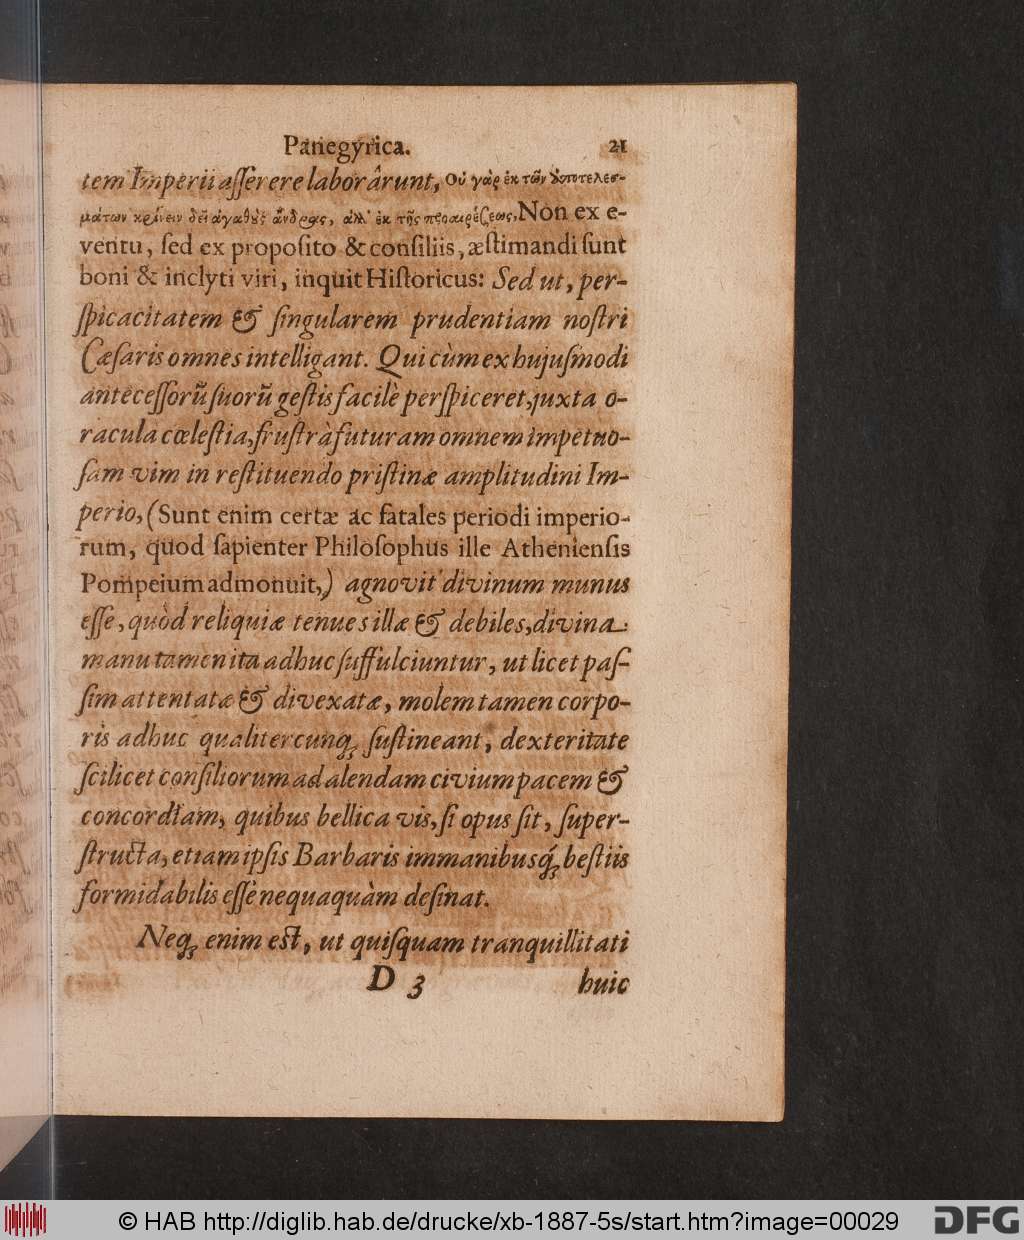 Panegyrica. 21
tem Imperii aſſerere laborârunt, Οὐ γὰρ ἐκ τῶν ὑποτελεσ-
μάτων κρίνειν δεῖ ἀγαθοὺς ἄνδρας, ἀλλ' ἐκ τῆς προαιρέσεως, Non ex e-
ventu, ſed ex propoſito & conſiliis, æſtimandi ſunt
boni & inclyti viri, inquit Hiſtoricus: Sed ut, per-
ſpicacitatem & ſingularem prudentiam noſtri
Cæſaris omnes intelligant. Qui cùm ex hujuſmodi
anteceſſorũ ſuorũ geſtis facilè perſpiceret, juxta o-
racula cœleſtia, fruſtrà futuram omnem impetuo-
ſam vim in reſtituendo priſtinæ amplitudini Im-
perio, (Sunt enim certæ ac fatales periodi imperio-
rum, quod ſapienter Philoſophus ille Athenienſis
Pompeium admonuit,) agnovit divinum munus
eſſe, quòd reliquiæ tenues illæ & debiles, divina
manu tamen ita adhuc ſuffulciuntur, ut licet paſ-
ſim attentatæ & divexatæ, molem tamen corpo-
ris adhuc qualitercunq́; ſuſtineant, dexteritate
ſcilicet conſiliorum ad alendam civium pacem &
concordiam, quibus bellica vis, ſi opus ſit, ſuper-
ſtructa, etiam ipſis Barbaris immanibusq́; beſtiis
formidabilis eſſe nequaquàm deſinat.
Neq; enim est, ut quiſquam tranquillitati
D 3 huic
© HAB http://diglib.hab.de/drucke/xb-1887-5s/start.htm?image=00029 DFG